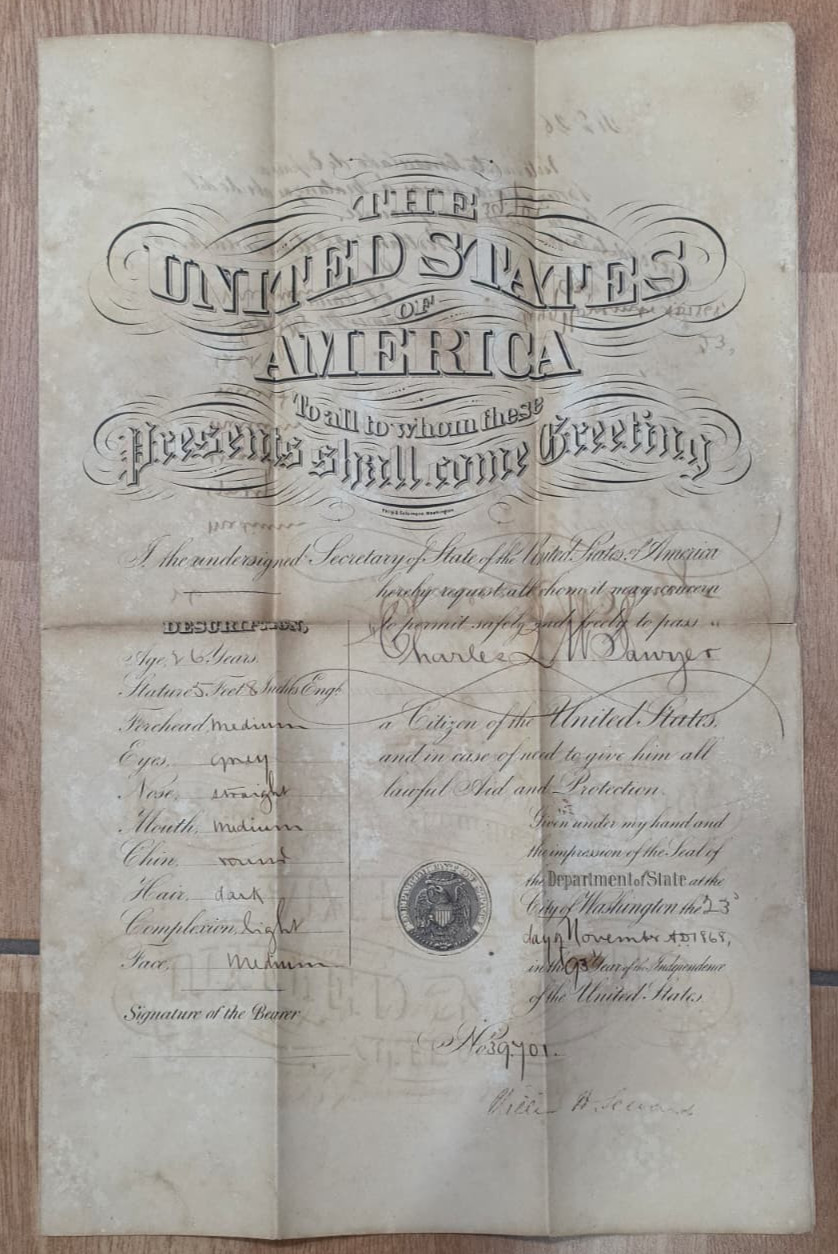 THE
UNITED STATES
OF
AMERICA
To all to whom these
Presents shall come Greeting
Philp & Solomons Washington
I the undersigned Secretary of State of the United States of America
hereby request all whom it may concern
to permit safely and freely to pass
Charles W Sawyer
a Citizen of the United States
and in case of need to give him all
lawful Aid and Protection.
DESCRIPTION,
Age, 26 Years
Stature 5 Feet 8 Inches Eng.
Forehead, medium
Eyes, grey
Nose, straight
Mouth, medium
Chin, round
Hair, dark
Complexion, light
Face, Medium
Signature of the Bearer
Given under my hand and
the impression of the Seal of
the Department of State at the
City of Washington the 23
day of November A.D. 1868,
in the 93 Year of the Independence
of the United States
No 39701.
William H Seward